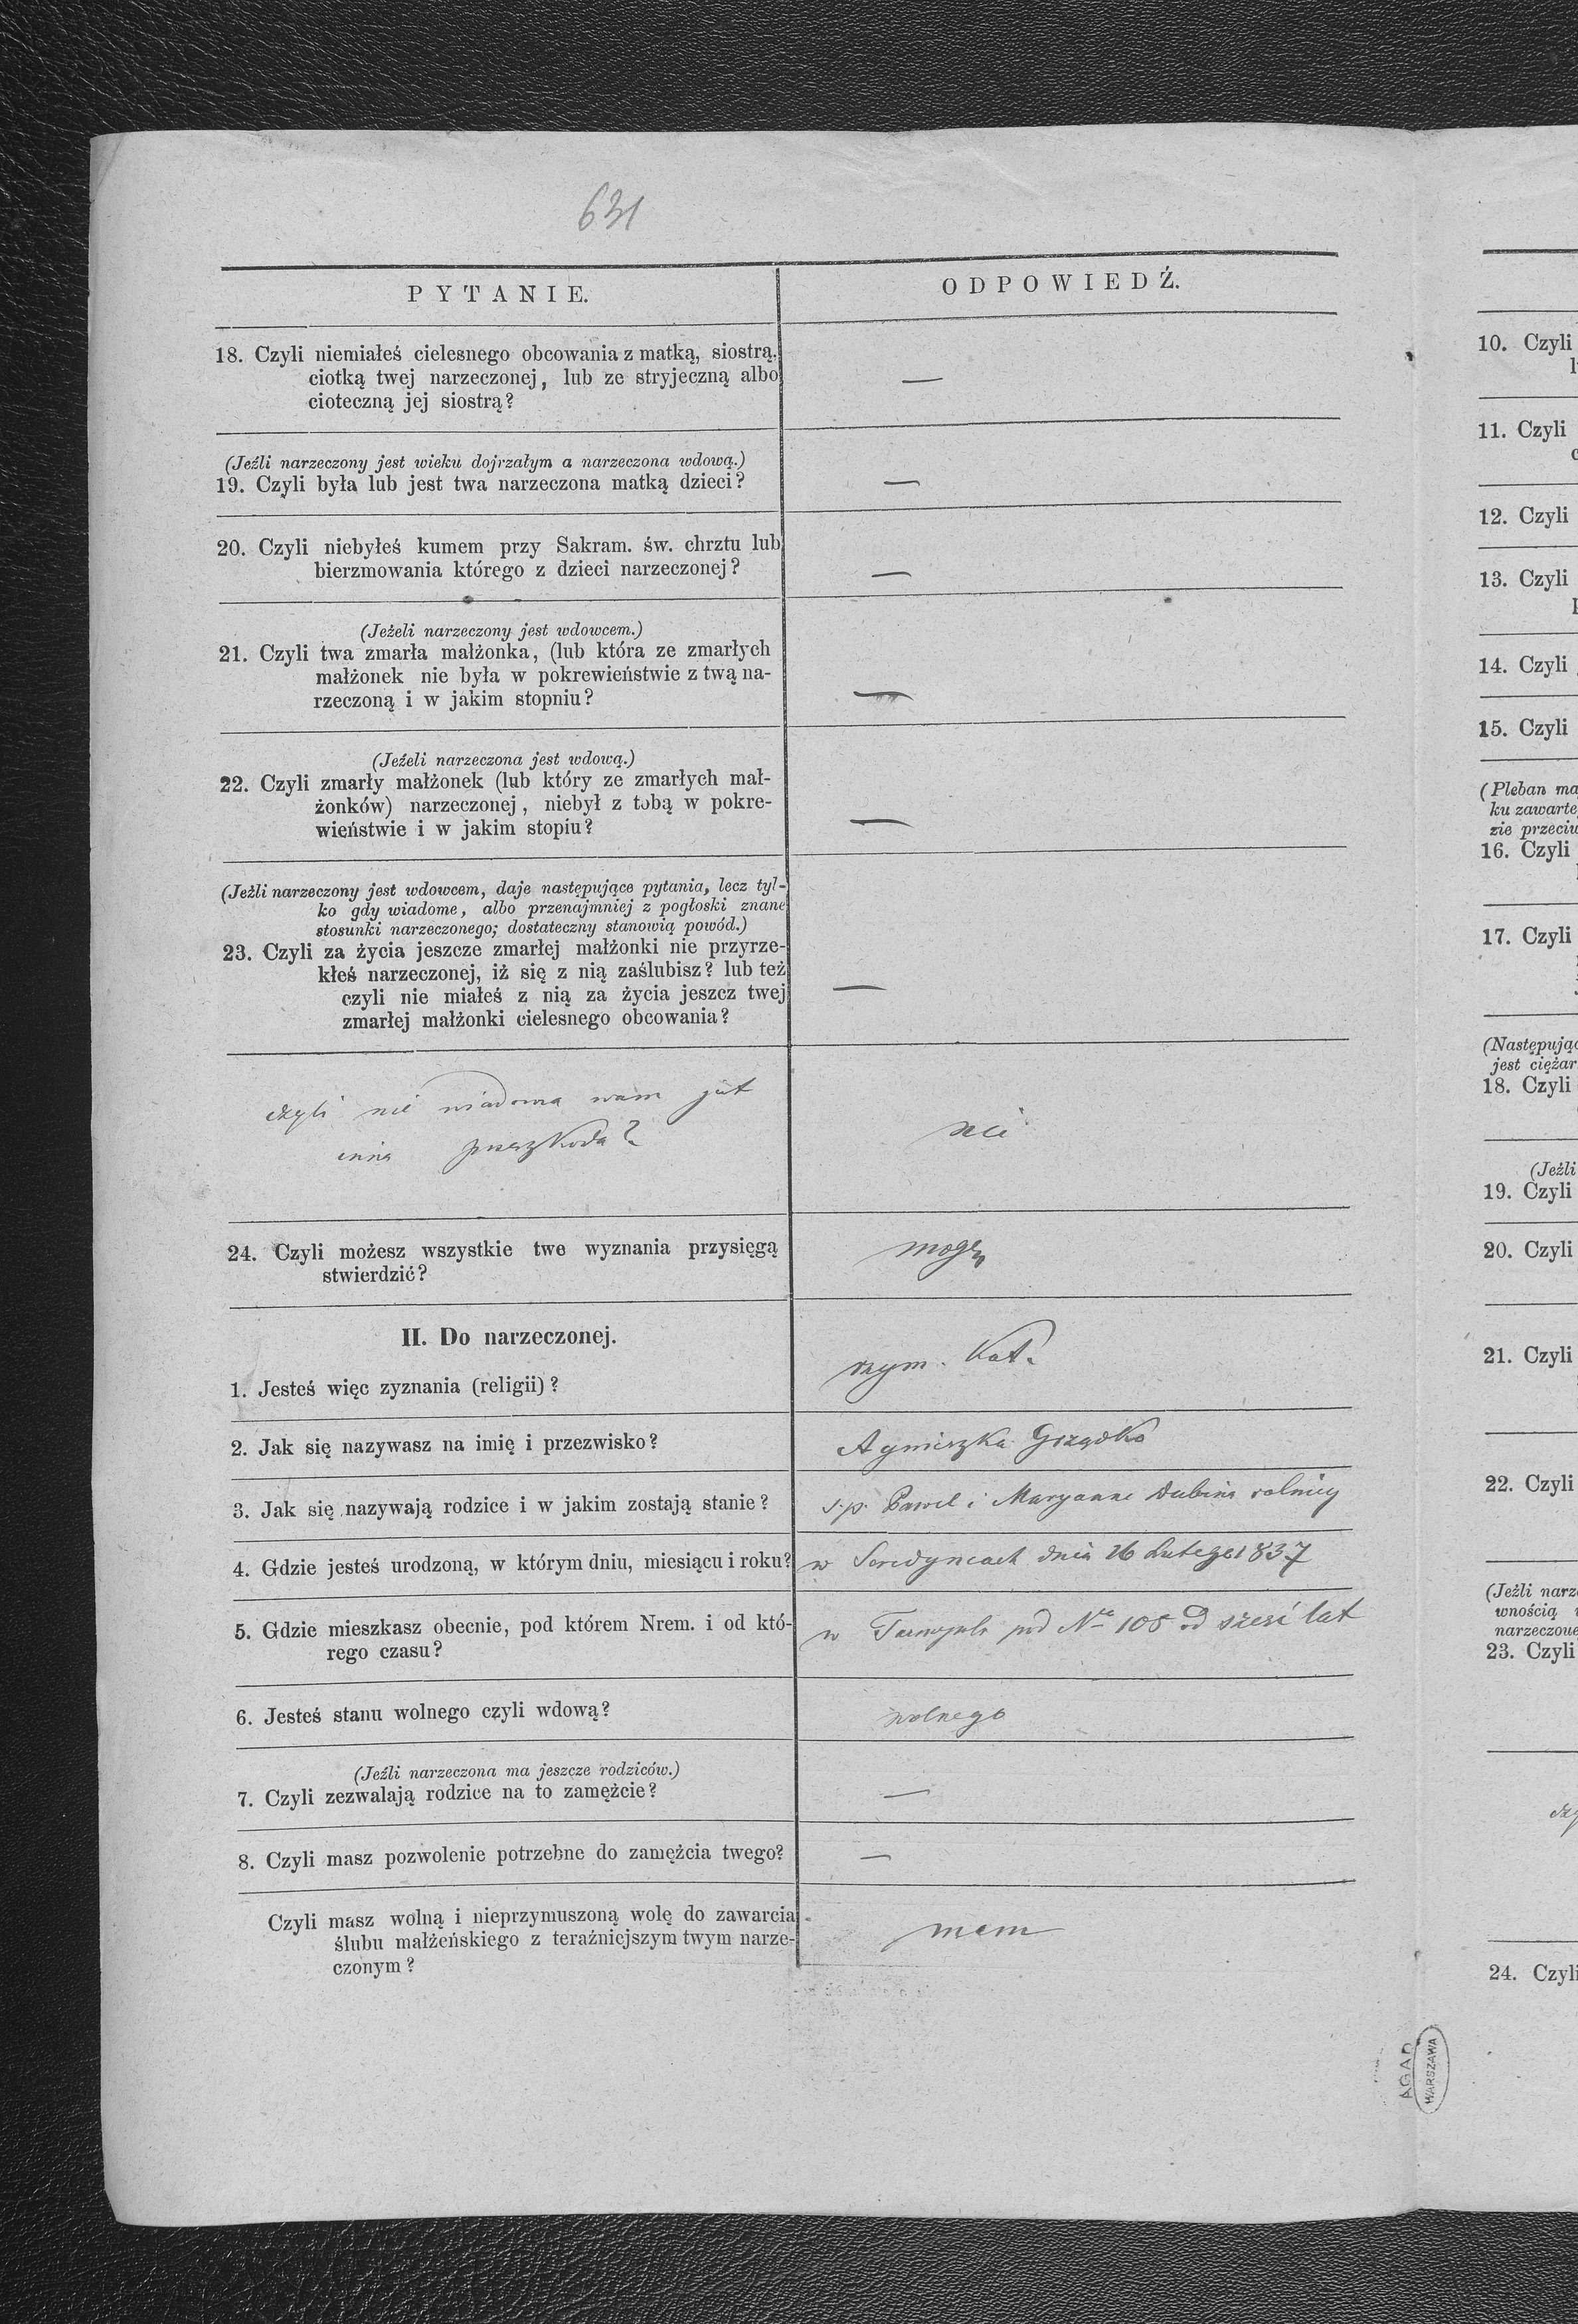 631
PYTANIE.
ODPOWIEDŹ.
18. Czyli niemiałeś cielesnego obcowania z matką, siostrą,
ciotką twej narzeczonej, lub ze stryjeczną albo
cioteczną jej siostrą?
—
(Jeźli narzeczony jest wieku dojrzałym a narzeczona wdową.)
19. Czyli była lub jest twa narzeczona matką dzieci?
—
20. Czyli niebyłeś kumem przy Sakram. św. chrztu lub
bierzmowania którego z dzieci narzeczonej?
—
(Jeżeli narzeczony jest wdowcem.)
21. Czyli twa zmarła małżonka, (lub która ze zmarłych
małżonek nie była w pokrewieństwie z twą na-
rzeczoną i w jakim stopniu?
—
(Jeżeli narzeczona jest wdową.)
22. Czyli zmarły małżonek (lub który ze zmarłych mał-
żonków) narzeczonej, niebył z tobą w pokre-
wieństwie i w jakim stopiu?
—
(Jeźli narzeczony jest wdowcem, daje następujące pytania, lecz tyl-
ko gdy wiadome, albo przenajmniej z pogłoski znane
stosunki narzeczonego; dostateczny stanowią powód.)
23. Czyli za życia jeszcze zmarłej małżonki nie przyrze-
kłeś narzeczonej, iż się z nią zaślubisz? lub też
czyli nie miałeś z nią za życia jeszcz twej
zmarłej małżonki cielesnego obcowania?
—
czyli nie wiadoma wam jest
inna przeszkoda?
nie
24. Czyli możesz wszystkie twe wyznania przysięgą
stwierdzić?
mogę
II. Do narzeczonej.
1. Jesteś więc zyznania (religii)?
rzym. kat.
2. Jak się nazywasz na imię i przezwisko?
Agnieszka Grządko
3. Jak się nazywają rodzice i w jakim zostają stanie?
s.p. Paweł i Maryanna Dubina rolnicy
4. Gdzie jesteś urodzoną, w którym dniu, miesiącu i roku?
w Seredyncach dnia 26 Lutego 1837
5. Gdzie mieszkasz obecnie, pod którem Nrem. i od któ-
rego czasu?
w Tarnopolu pod Nro 105 od sześć lat
6. Jesteś stanu wolnego czyli wdową?
wolnego
(Jeźli narzeczona ma jeszcze rodziców.)
7. Czyli zezwalają rodzice na to zamężcie?
—
8. Czyli masz pozwolenie potrzebne do zamężcia twego?
—
Czyli masz wolną i nieprzymuszoną wolę do zawarcia
ślubu małżeńskiego z teraźniejszym twym narze-
czonym?
mam
10. Czyli
11. Czyli
12. Czyli
13. Czyli
14. Czyli
15. Czyli
(Pleban ma
ku zawarte
zie przeciw
16. Czyli
17. Czyli
(Następując
jest ciężar
18. Czyli
(Jeźli
19. Czyli
20. Czyli
21. Czyli
22. Czyli
(Jeźli narz
wnością
narzeczone
23. Czyli
24. Czyli
AGAD
WARSZAWA